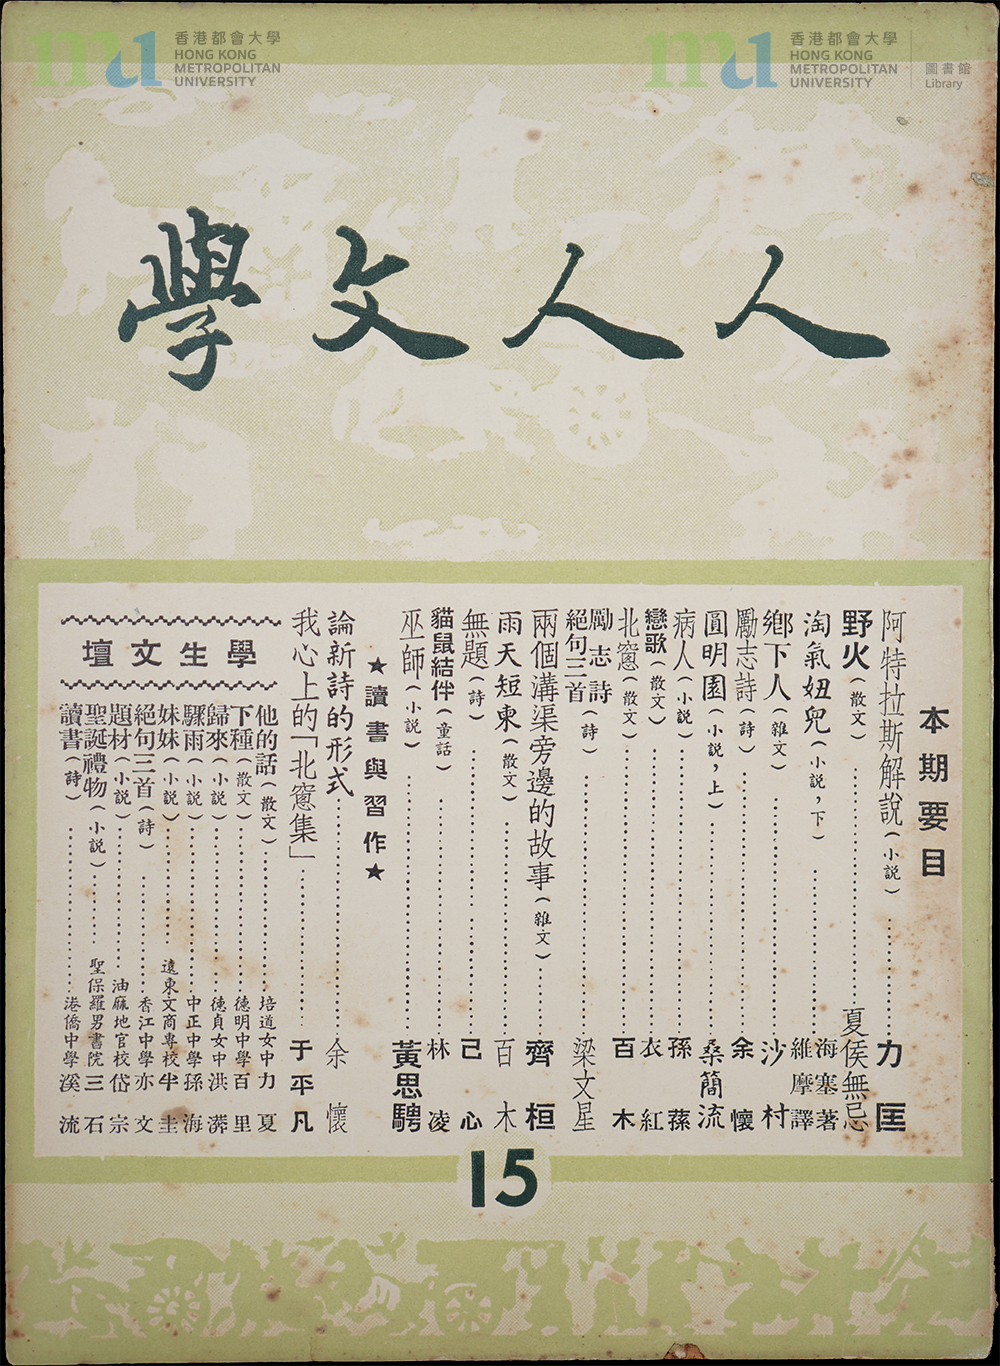 香港都會大學
HONG KONG
METROPOLITAN
UNIVERSITY
香港都會大學
HONG KONG
METROPOLITAN
UNIVERSITY
圖書館
Library
人人文學
本期要目
阿特拉斯解說（小説）力匡
野火（散文）夏侯無忌
淘氣妞兒（小説，下）海塞著 維摩譯
鄉下人（雜文）沙村
勵志詩（詩）余懷
圓明園（小説，上）桑簡流
病人（小説）孫蓀
戀歌（散文）衣紅
北窻（散文）百木
勵志詩
絕句三首（詩）梁文星
兩個溝渠旁邊的故事（雜文）齊桓
雨天短柬（散文）百木
無題（詩）己心
貓鼠結伴（童話）林凌
巫師（小説）黃思騁
★讀書與習作★
論新詩的形式 余懷
我心上的「北窻集」于平凡
學生文壇
他的話（散文）培道女中力夏
下種（散文）德明中學百里
歸來（小説）德貞女中洪漭
驟雨（小説）中正中學孫海
妹妹（小説）遠東文商專校牛圭
絕句三首（詩）香江中學亦文
題材（小説）油蔴地官校岱宗
聖誕禮物（小説）聖保羅男書院三石
讀書（詩）港僑中學溪流
15